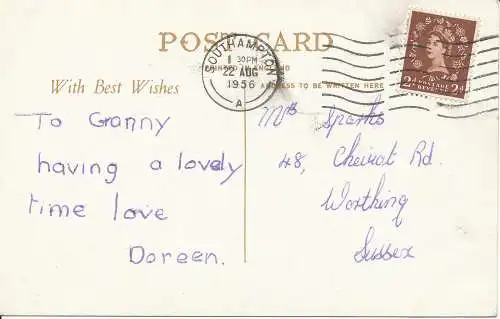 POST CARD
SOUTHAMPTON
1 30PM
22 AUG
1956
A
PRINTED IN ENGLAND
With Best Wishes
ADDRESS TO BE WRITTEN HERE
2d POSTAGE REVENUE 2d
To Granny
having a lovely
time love
Doreen.
Mrs Sparks
48, Cheviot Rd.
Worthing
Sussex